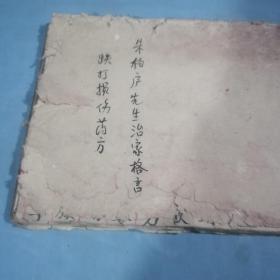 朱柏庐先生治家格言
跌打损伤药方